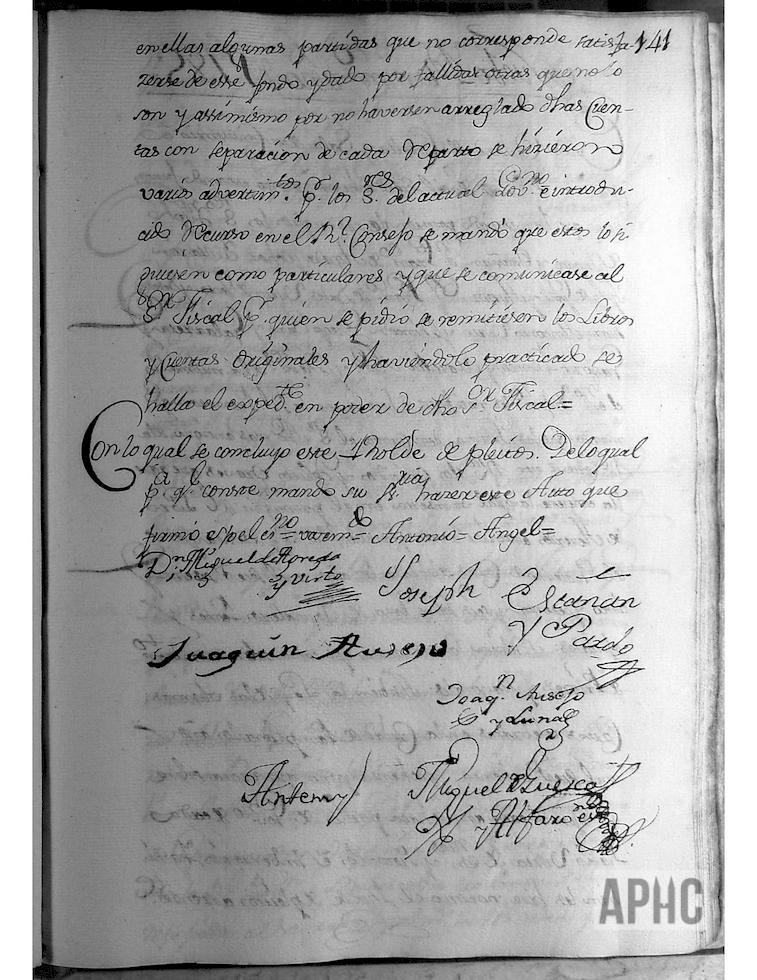 141
en ellas algunas partidas que no corresponde satisfa-
zerse de esse fondo y dado por fallidas otras que no lo
son y assimismo por no haversen arreglado dhas Cuen-
tas con separacion de cada Reparto se hizieron
varios advertim.tos p.r los S.res del actual Gov.no e introdu-
cido Recurso en el R.l Consejo se mandó que estos lo si
guiesen como particulares y que se comunicase al
S.or Fiscal p.r quien se pidió se remitiesen los Libros
y Cuentas Originales y haviendolo practicado se
halla el exped.te en poder de dho S.or Fiscal=
Con lo qual se concluyo este Alholde de pleitos. De lo qual
p.a q.e conste mandó su S.ria hazer este Auto que
firmó espel
Antonio= Angel=
D.n Miguel de
y Virto
Joseph Escanan
y Pardo
Juaquin Ausejo
Joaq.n Ausejo
y Luna
Antemy
Miguel de Huesca
y Alfaro es.no
APHC